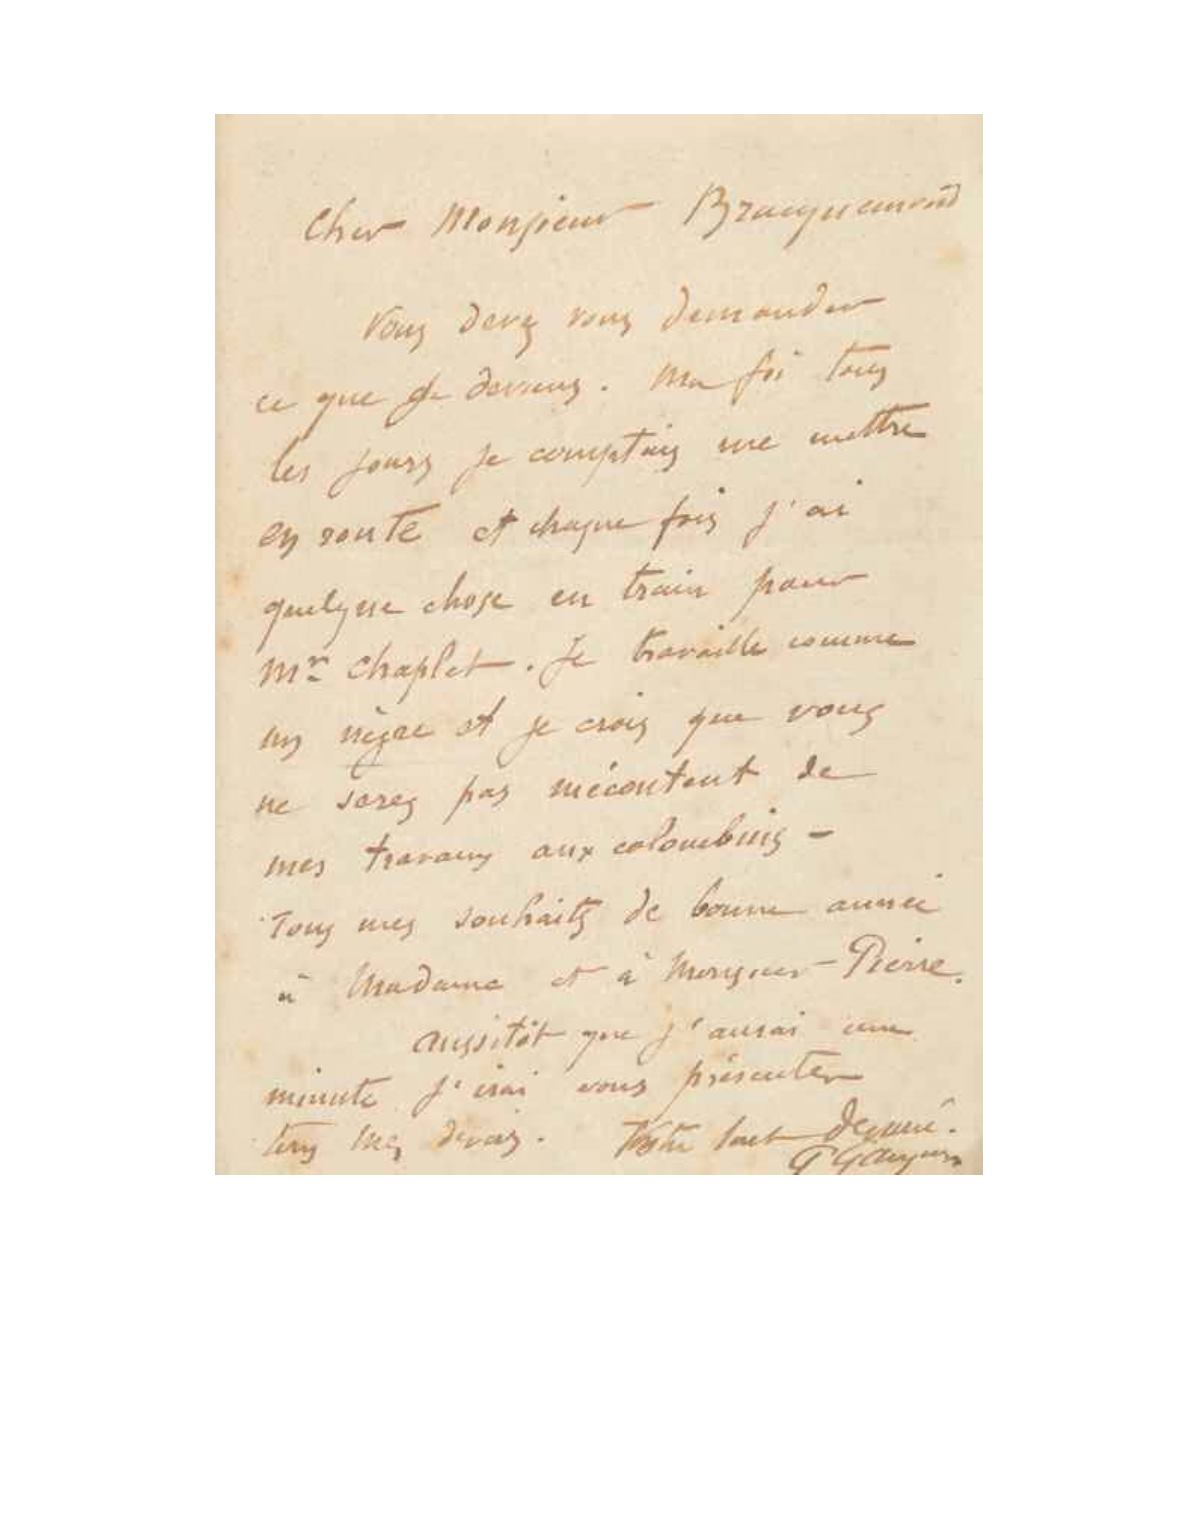 Cher Monsieur Bracquemond
Vous devez vous demander
ce que je deviens. Ma foi tous
les jours je comptais me mettre
en route et chaque fois j'ai
quelque chose en train pour
Mr Chaplet. Je travaille comme
un nègre et je crois que vous
ne serez pas mécontent de
mes travaux aux colombins -
Tous mes souhaits de bonne année
à Madame et à Monsieur Pierre.
Aussitôt que j'aurai une
minute j'irai vous présenter
tous mes devoirs. Votre tout dévoué.
P Gauguin